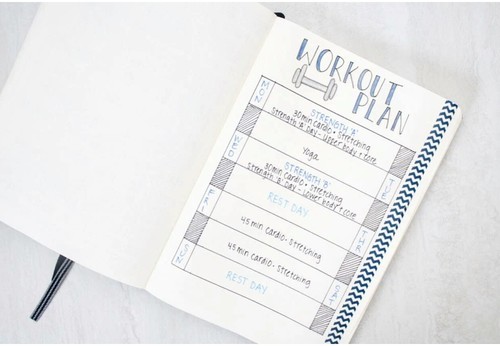 WORKOUT
PLAN
MON
STRENGTH 'A'
30min Cardio + stretching
Strength 'A' Day - Upper body + core
Yoga
TUE
WED
STRENGTH 'B'
30min Cardio + stretching
Strength 'a' Day - Upper body + core
REST DAY
THR
FRI
45 min cardio + stretching
45 min cardio + stretching
SAT
SUN
REST DAY